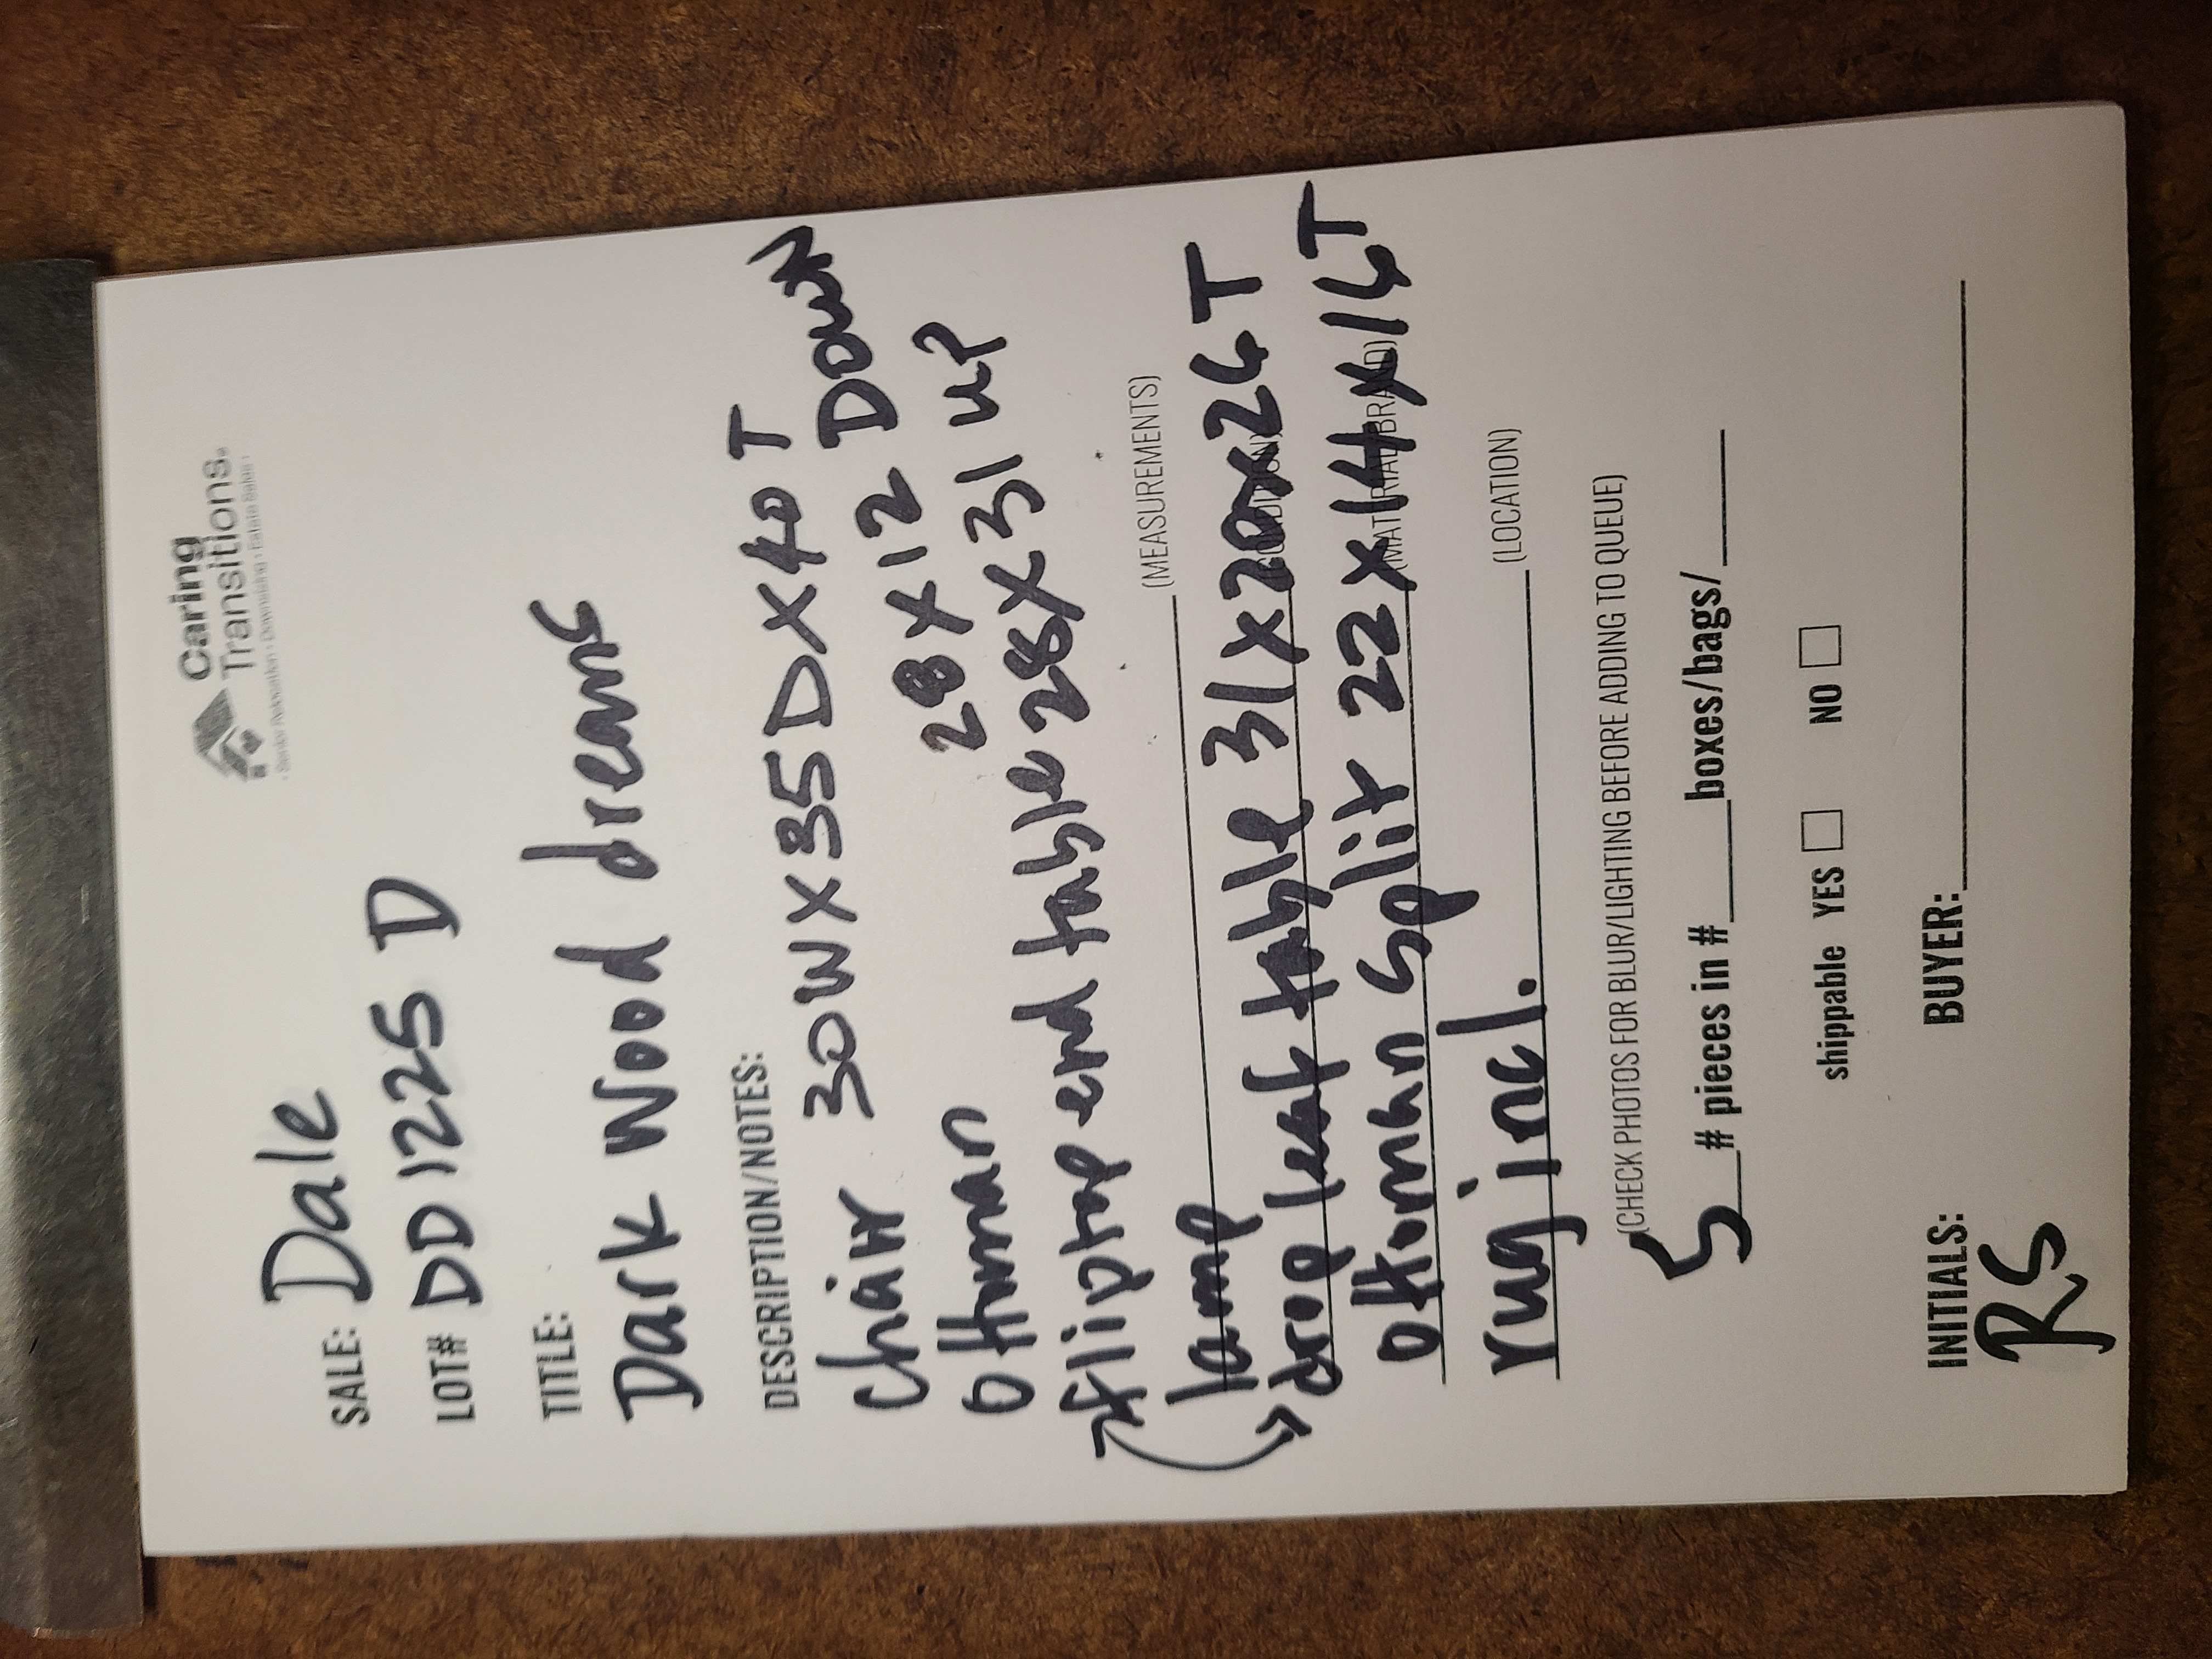 Caring
Transitions®
• Senior Relocation • Downsizing • Estate Sales •
SALE: Dale
LOT# DD 1225 D
TITLE:
Dark Wood dreams
DESCRIPTION/NOTES:
Chair 30W X 35D X 40 T
Ottman 28 X 12 DOWN
fliptop end table 28X 31 UP
lamp (MEASUREMENTS)
drop leaf table 31 x 20 x 26 T
ottoman split 22 x 14 x 16 T
(MATERIAL/BRAND)
rug incl. (LOCATION)
(CHECK PHOTOS FOR BLUR/LIGHTING BEFORE ADDING TO QUEUE)
5 # pieces in # boxes/bags/
shippable YES NO
INITIALS: BUYER:
RS